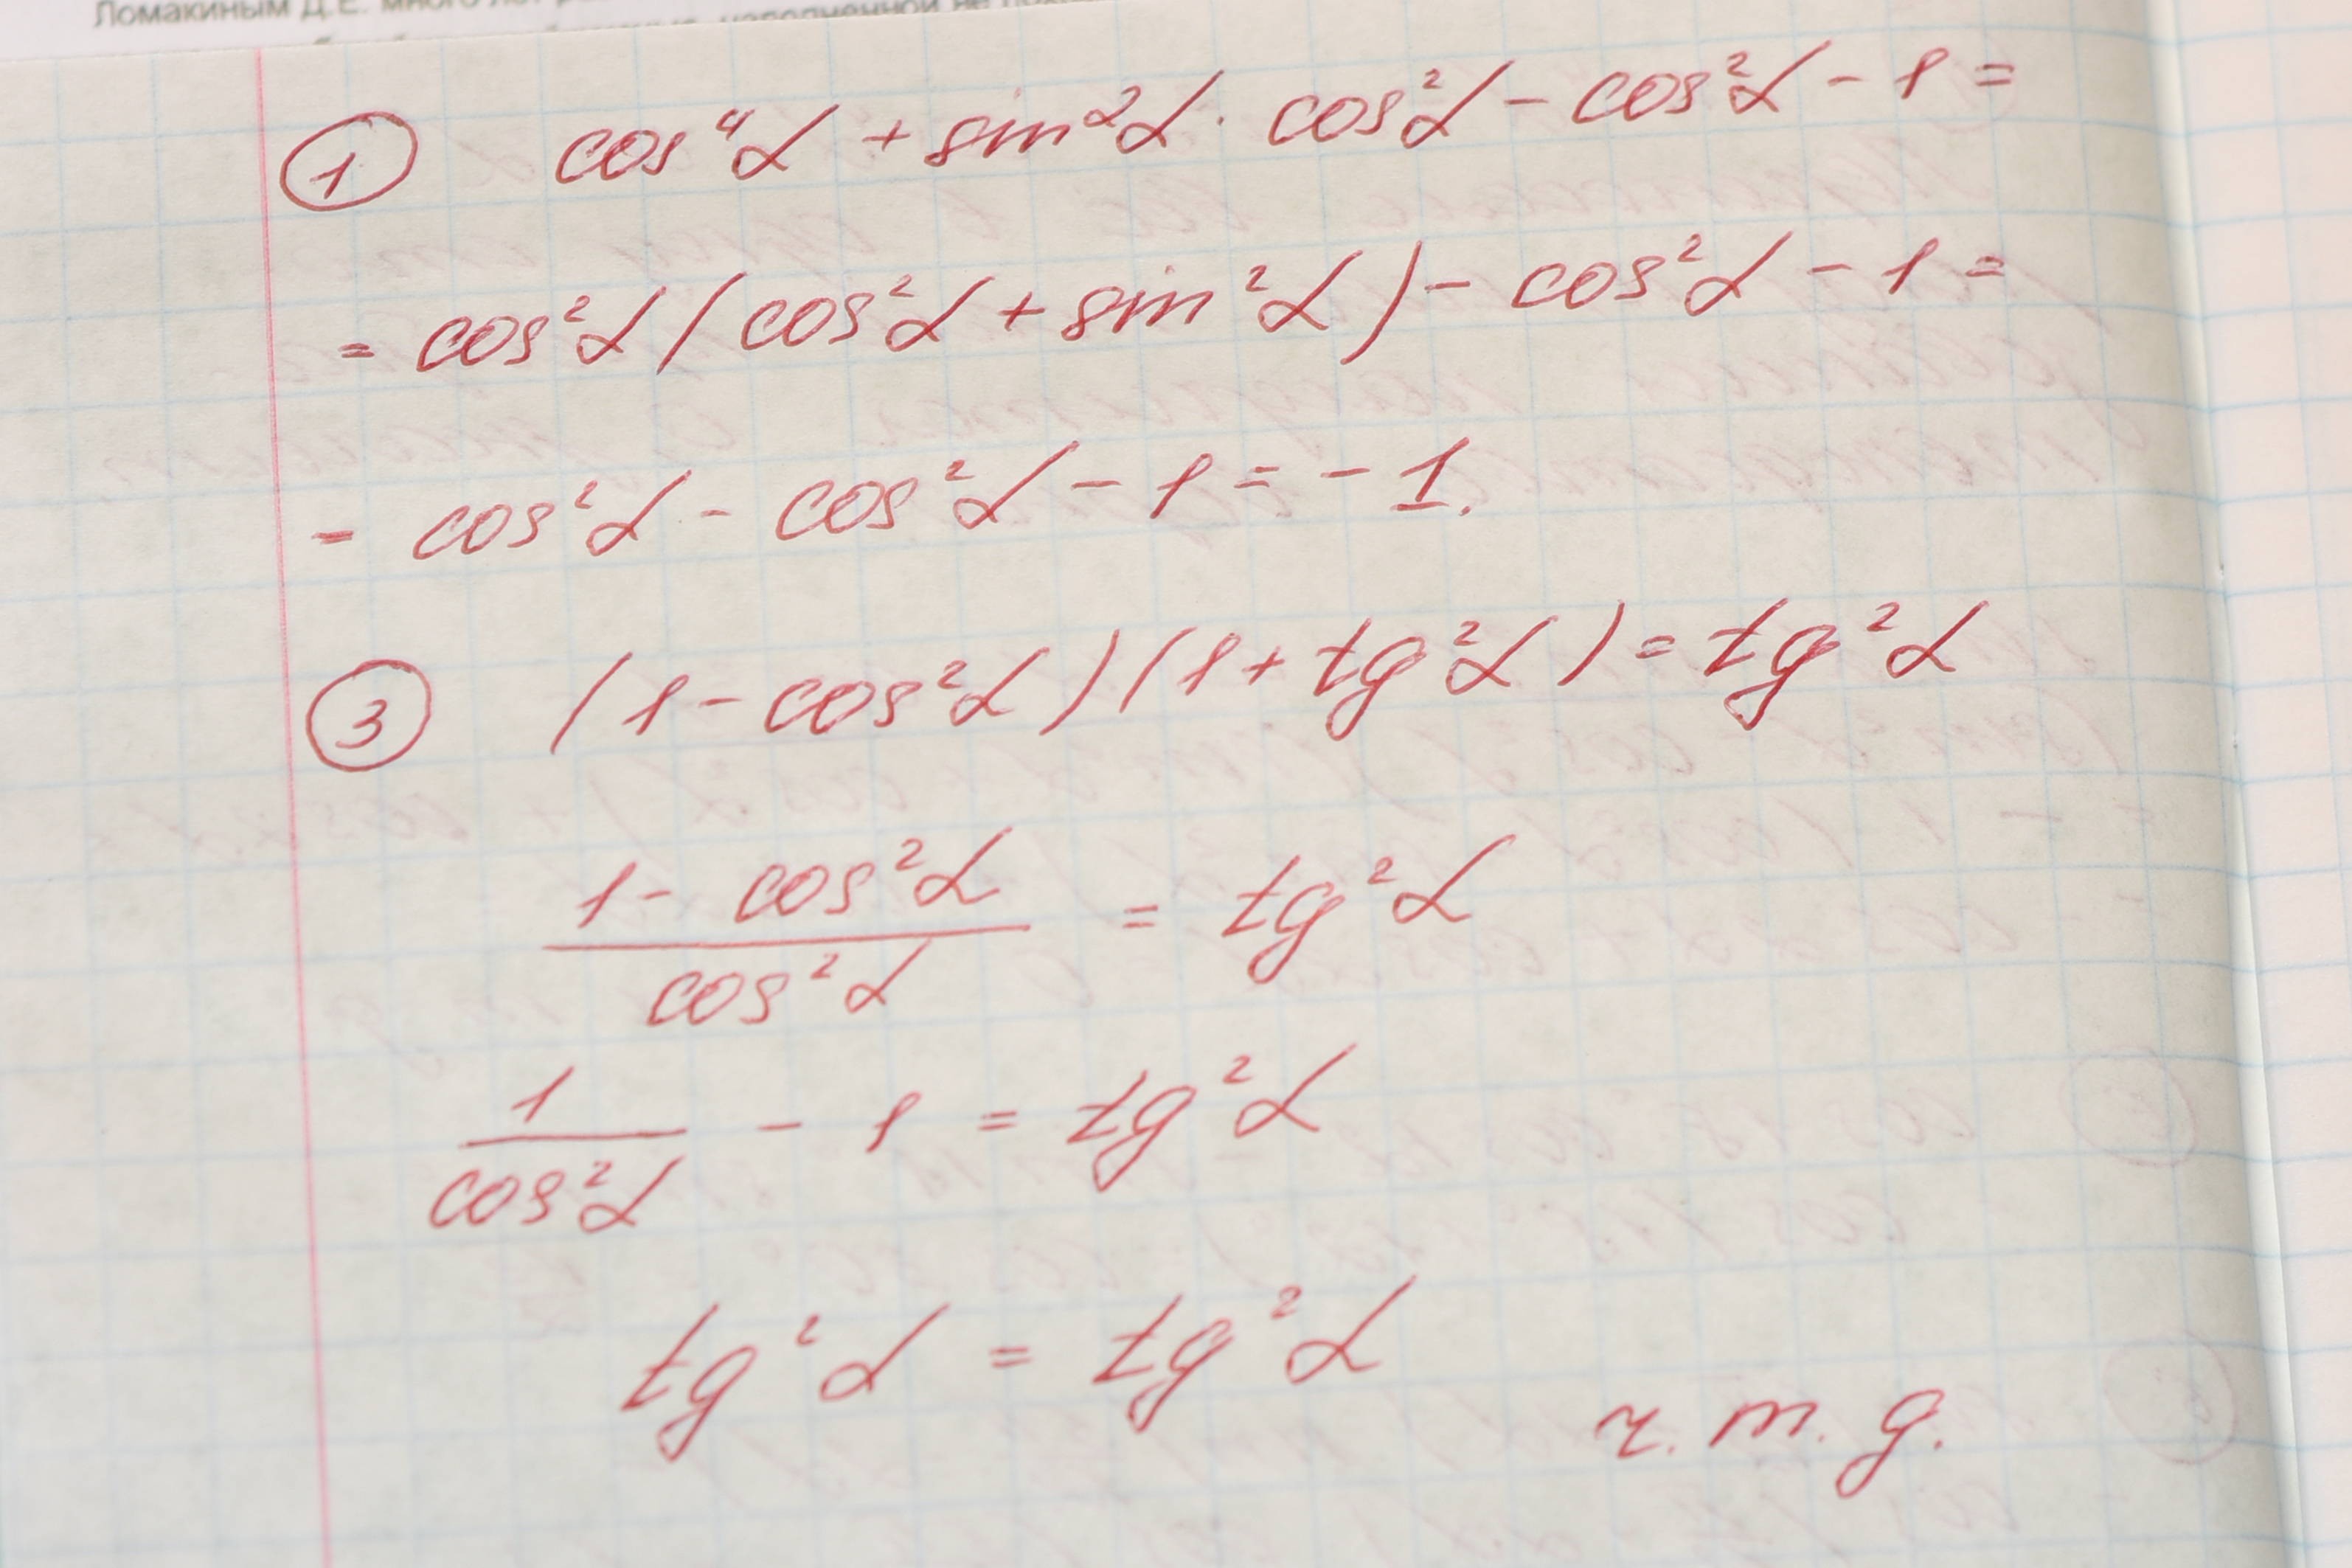 Ломакиным Д.Е. много лет
наполненной не
① cos⁴α + sin²α · cos²α - cos²α - 1 =
= cos²α (cos²α + sin²α) - cos²α - 1 =
= cos²α - cos²α - 1 = -1.
③ (1 - cos²α)(1 + tg²α) = tg²α
1 - cos²α
cos²α
= tg²α
1
cos²α
- 1 = tg²α
tg²α = tg²α
ч. т. д.